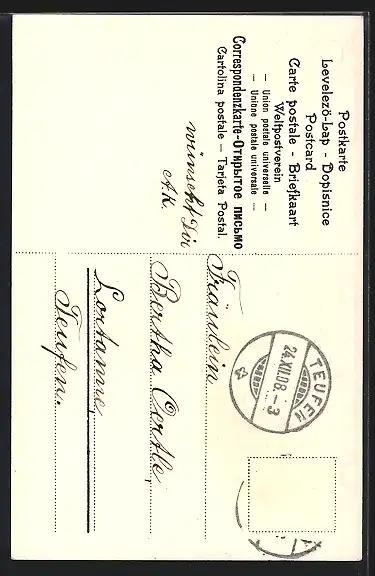 Postkarte
Levelező-Lap - Dopisnice
Postcard
Carte postale - Briefkaart
Weltpostverein
— Union postale universelle —
— Unione postale universale —
Correspondenzkarte-Открытое письмо
Cartolina postale — Tarjeta Postal.
wünscht Dir
A.K.
TEUFEN
24.XII.08.-3
Fräulein
Bertha Oertle,
Teufen.